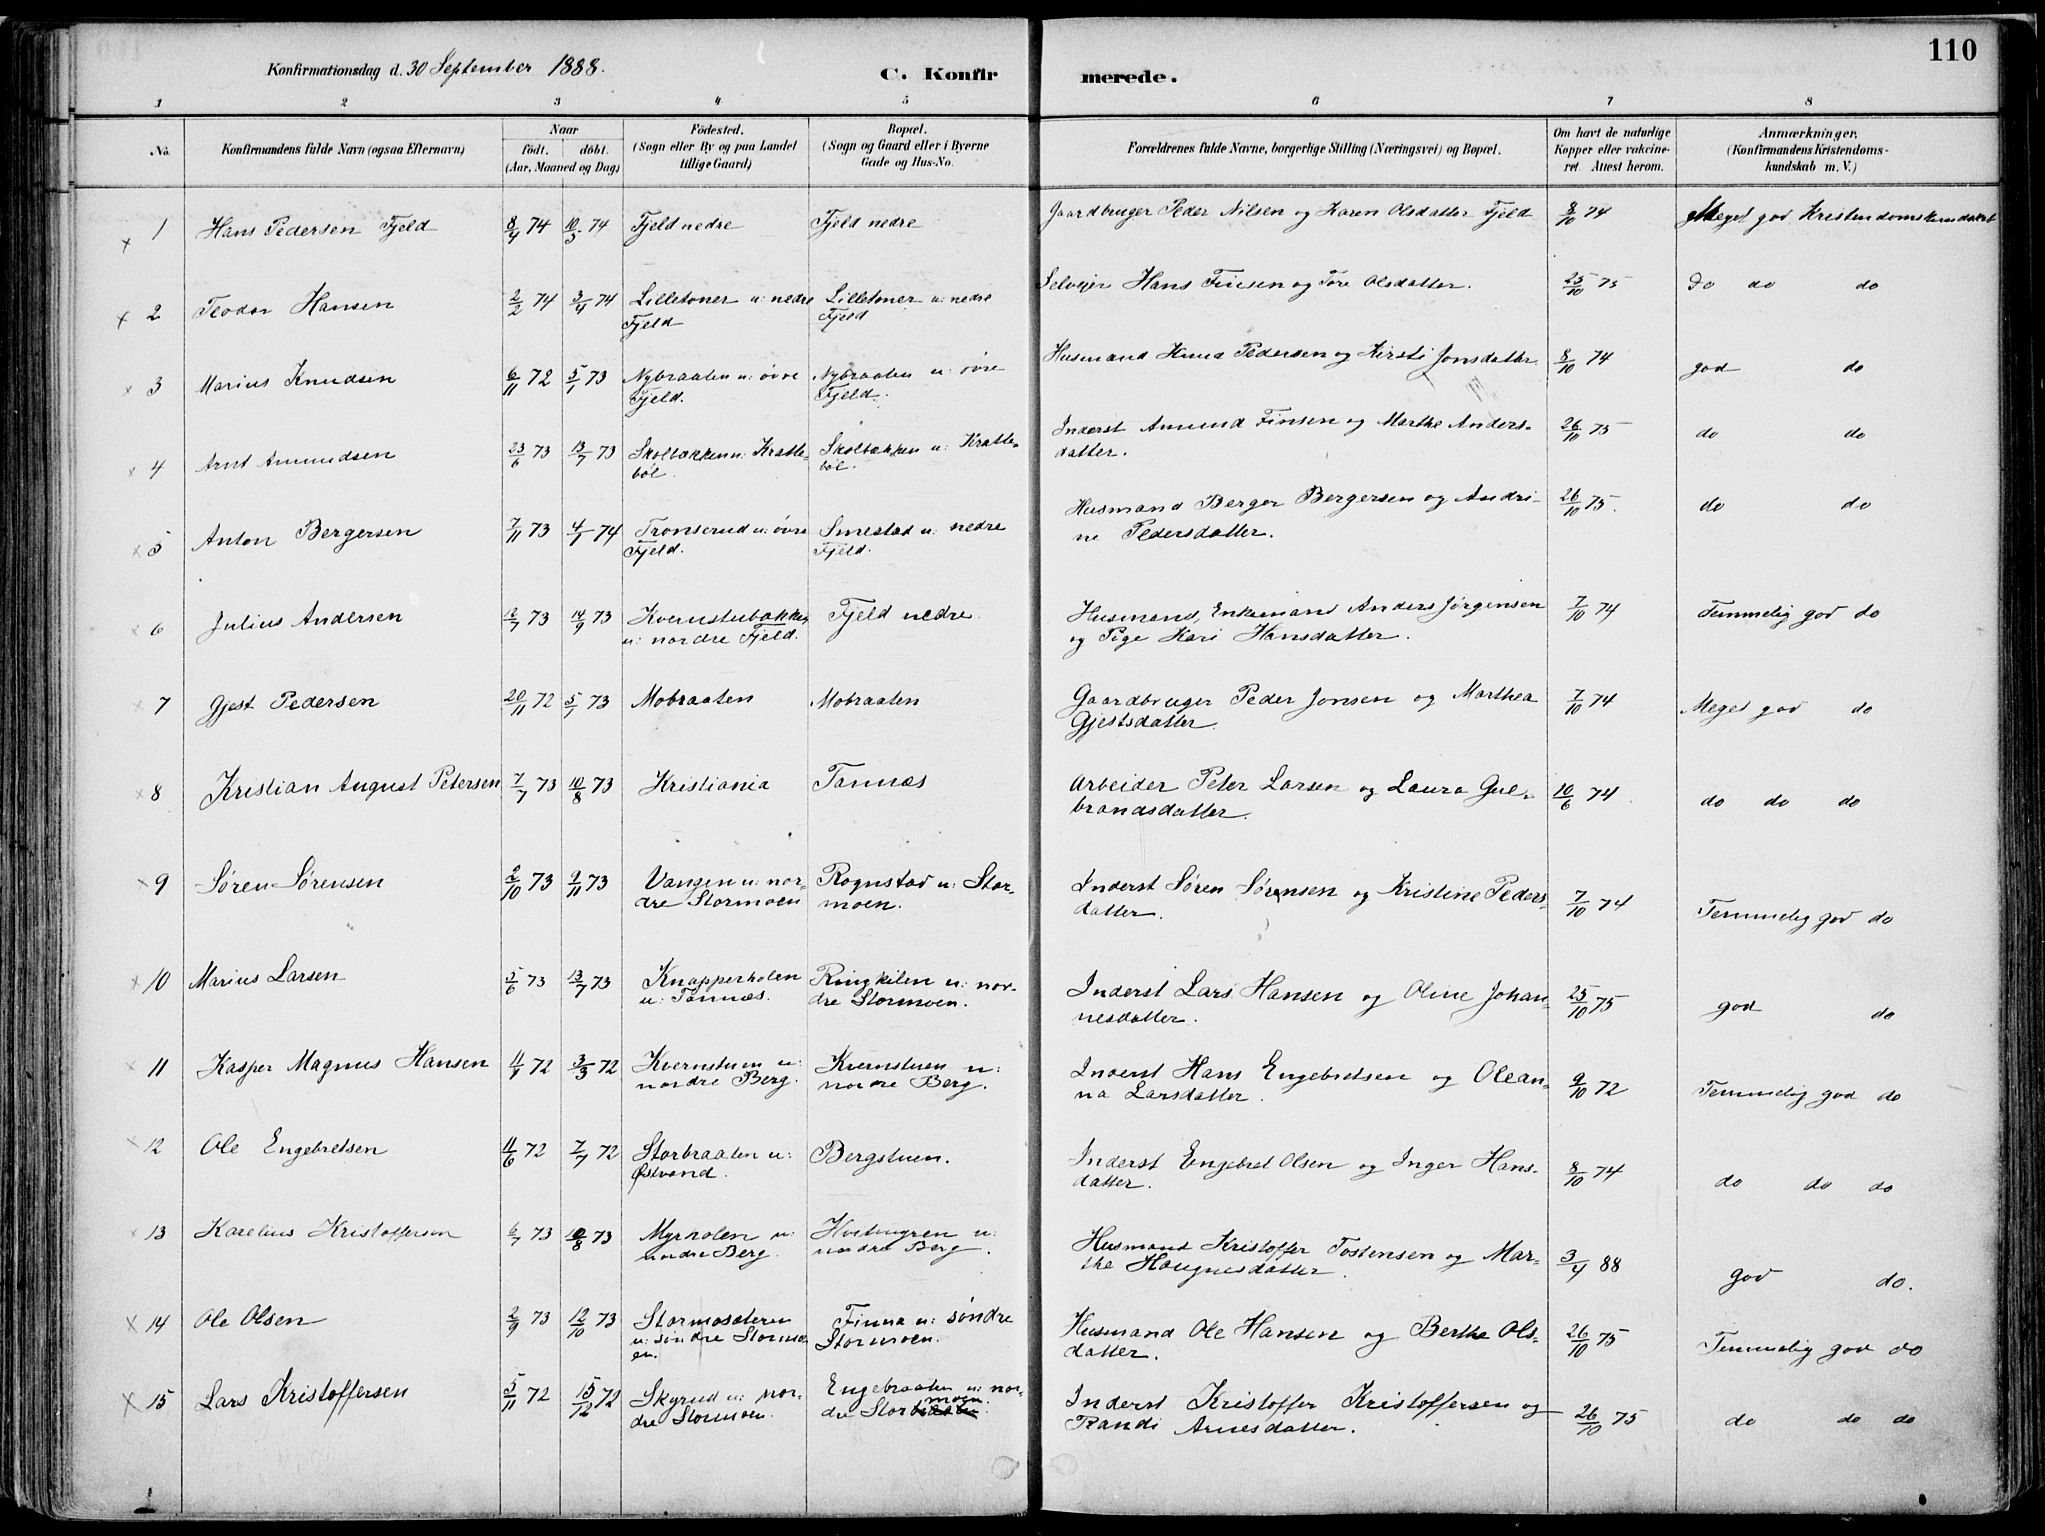 110
Konfirmationsdag d. 30 September 1888.
C. Konfirmerede.
1 2 3 4 5 6 7 8
No.
Konfirmandens fulde Navn (ogsaa Efternavn)
Naar
födt. döbt.
(Aar, Maaned og Dag)
Födested.
(Sogn eller By og paa Landet
tillige Gaard)
Bopæl.
(Sogn og Gaard eller i Byerne
Gade og Hus-No.
Forældrenes fulde Navne, borgerlige Stilling (Næringsvei) og Bopæl.
Om havt de naturlige
Kopper eller vakcine-
ret. Attest herom.
Anmærkninger.
(Konfirmandens Kristendoms-
kundskab m. V.)
x 1 Hans Pedersen Fjeld 8/4 74 10/5 74 Fjeld nedre Fjeld nedre Gaardbruger Peder Nilsen og Karen Olsdatter Fjeld 8/10 74 Meget god Kristendomskundskab
x 2 Teodor Hansen 2/2 74 3/4 74 Lilletoner u: nedre Fjeld Lilletoner u: nedre Fjeld Selveier Hans Finsen og Tore Olsdatter. 25/10 75 do do do
x 3 Marius Knudsen 6/11 72 5/1 73 Nybraaten u: övre Fjeld. Nybraaten u: övre Fjeld. Husmand Knud Pedersen og Kirsti Jonsdatter 8/10 74 god do
x 4 Arnt Amundsen 23/6 73 13/7 73 Skolbækken u: Krattebøl. Skolbækken u: Krattebøl. Inderst Amund Finsen og Marthe Andersdatter. 26/10 75 do do
x 5 Anton Bergersen 7/11 73 4/1 74 Tronserud u: övre Fjeld. Smestad u: nedre Fjeld. Husmand Berger Bergersen og Andrine Pedersdatter. 26/10 75. do do
x 6 Julius Andersen 12/7 73 14/9 73 Kvernstubakken u: nordre Fjeld. Fjeld nedre Husmand, Enkemand Anders Jørgensen og Pige Kari Hansdatter. 7/10 74 Temmelig god do
x 7 Gjest Pedersen 20/11 72 5/1 73 Mobraaten Mobraaten Gaardbruger Peder Jonsen og Marthea Gjestsdatter 7/10 74 Meget god do
x 8 Kristian August Petersen 7/7 73 10/8 73 Kristiania Tannæs Arbeider Peter Larsen og Laura Gulbrandsdatter. 10/6 74 do do do
x 9 Søren Sørensen 2/10 73 9/11 73 Vangen u: nordre Stormoen Rognstad u: Stormoen. Inderst Søren Sørensen og Kristine Pedersdatter. 7/10 74 Temmelig god do
x 10 Marius Larsen 5/6 73 13/7 73 Knapperholen u: Tannæs. Ringkilen u: nordre Stormoen. Inderst Lars Hansen og Oline Johannesdatter. 25/10 75 god do
x 11 Kasper Magnus Hansen 11/1 72 3/3 72 Kvernstuen u: nordre Berg. Kvernstuen u: nordre Berg. Inderst Hans Engebretsen og Oleanna Larsdatter. 9/10 72 Temmelig god do
x 12 Ole Engebretsen 11/6 72 7/7 72 Storbraaten u: Østvand. Bergstuen. Inderst Engebret Olsen og Inger Hansdatter. 8/10 74 do do do
x 13 Karelius Kristoffersen 6/7 73 10/8 73 Myrholen u: nordre Berg. u: nordre Berg. Husmand Kristoffer Tostensen og Marthe Haugnesdatter. 3/4 88 god do.
x 14 Ole Olsen 2/9 73 12/10 73 Stormosæteren u: søndre Stormoen. Finna u: søndre Stormoen. Husmand Ole Hansen og Berthe Olsdatter. 26/10 75 Temmelig god do
x 15 Lars Kristoffersen 5/11 72 15/12 72 Skyrud u: nordre Stormoen. Engebraaten u: nordre Stormoen. Inderst Kristoffer Kristoffersen og Randi Arnesdatter. 26/10 75 do do do